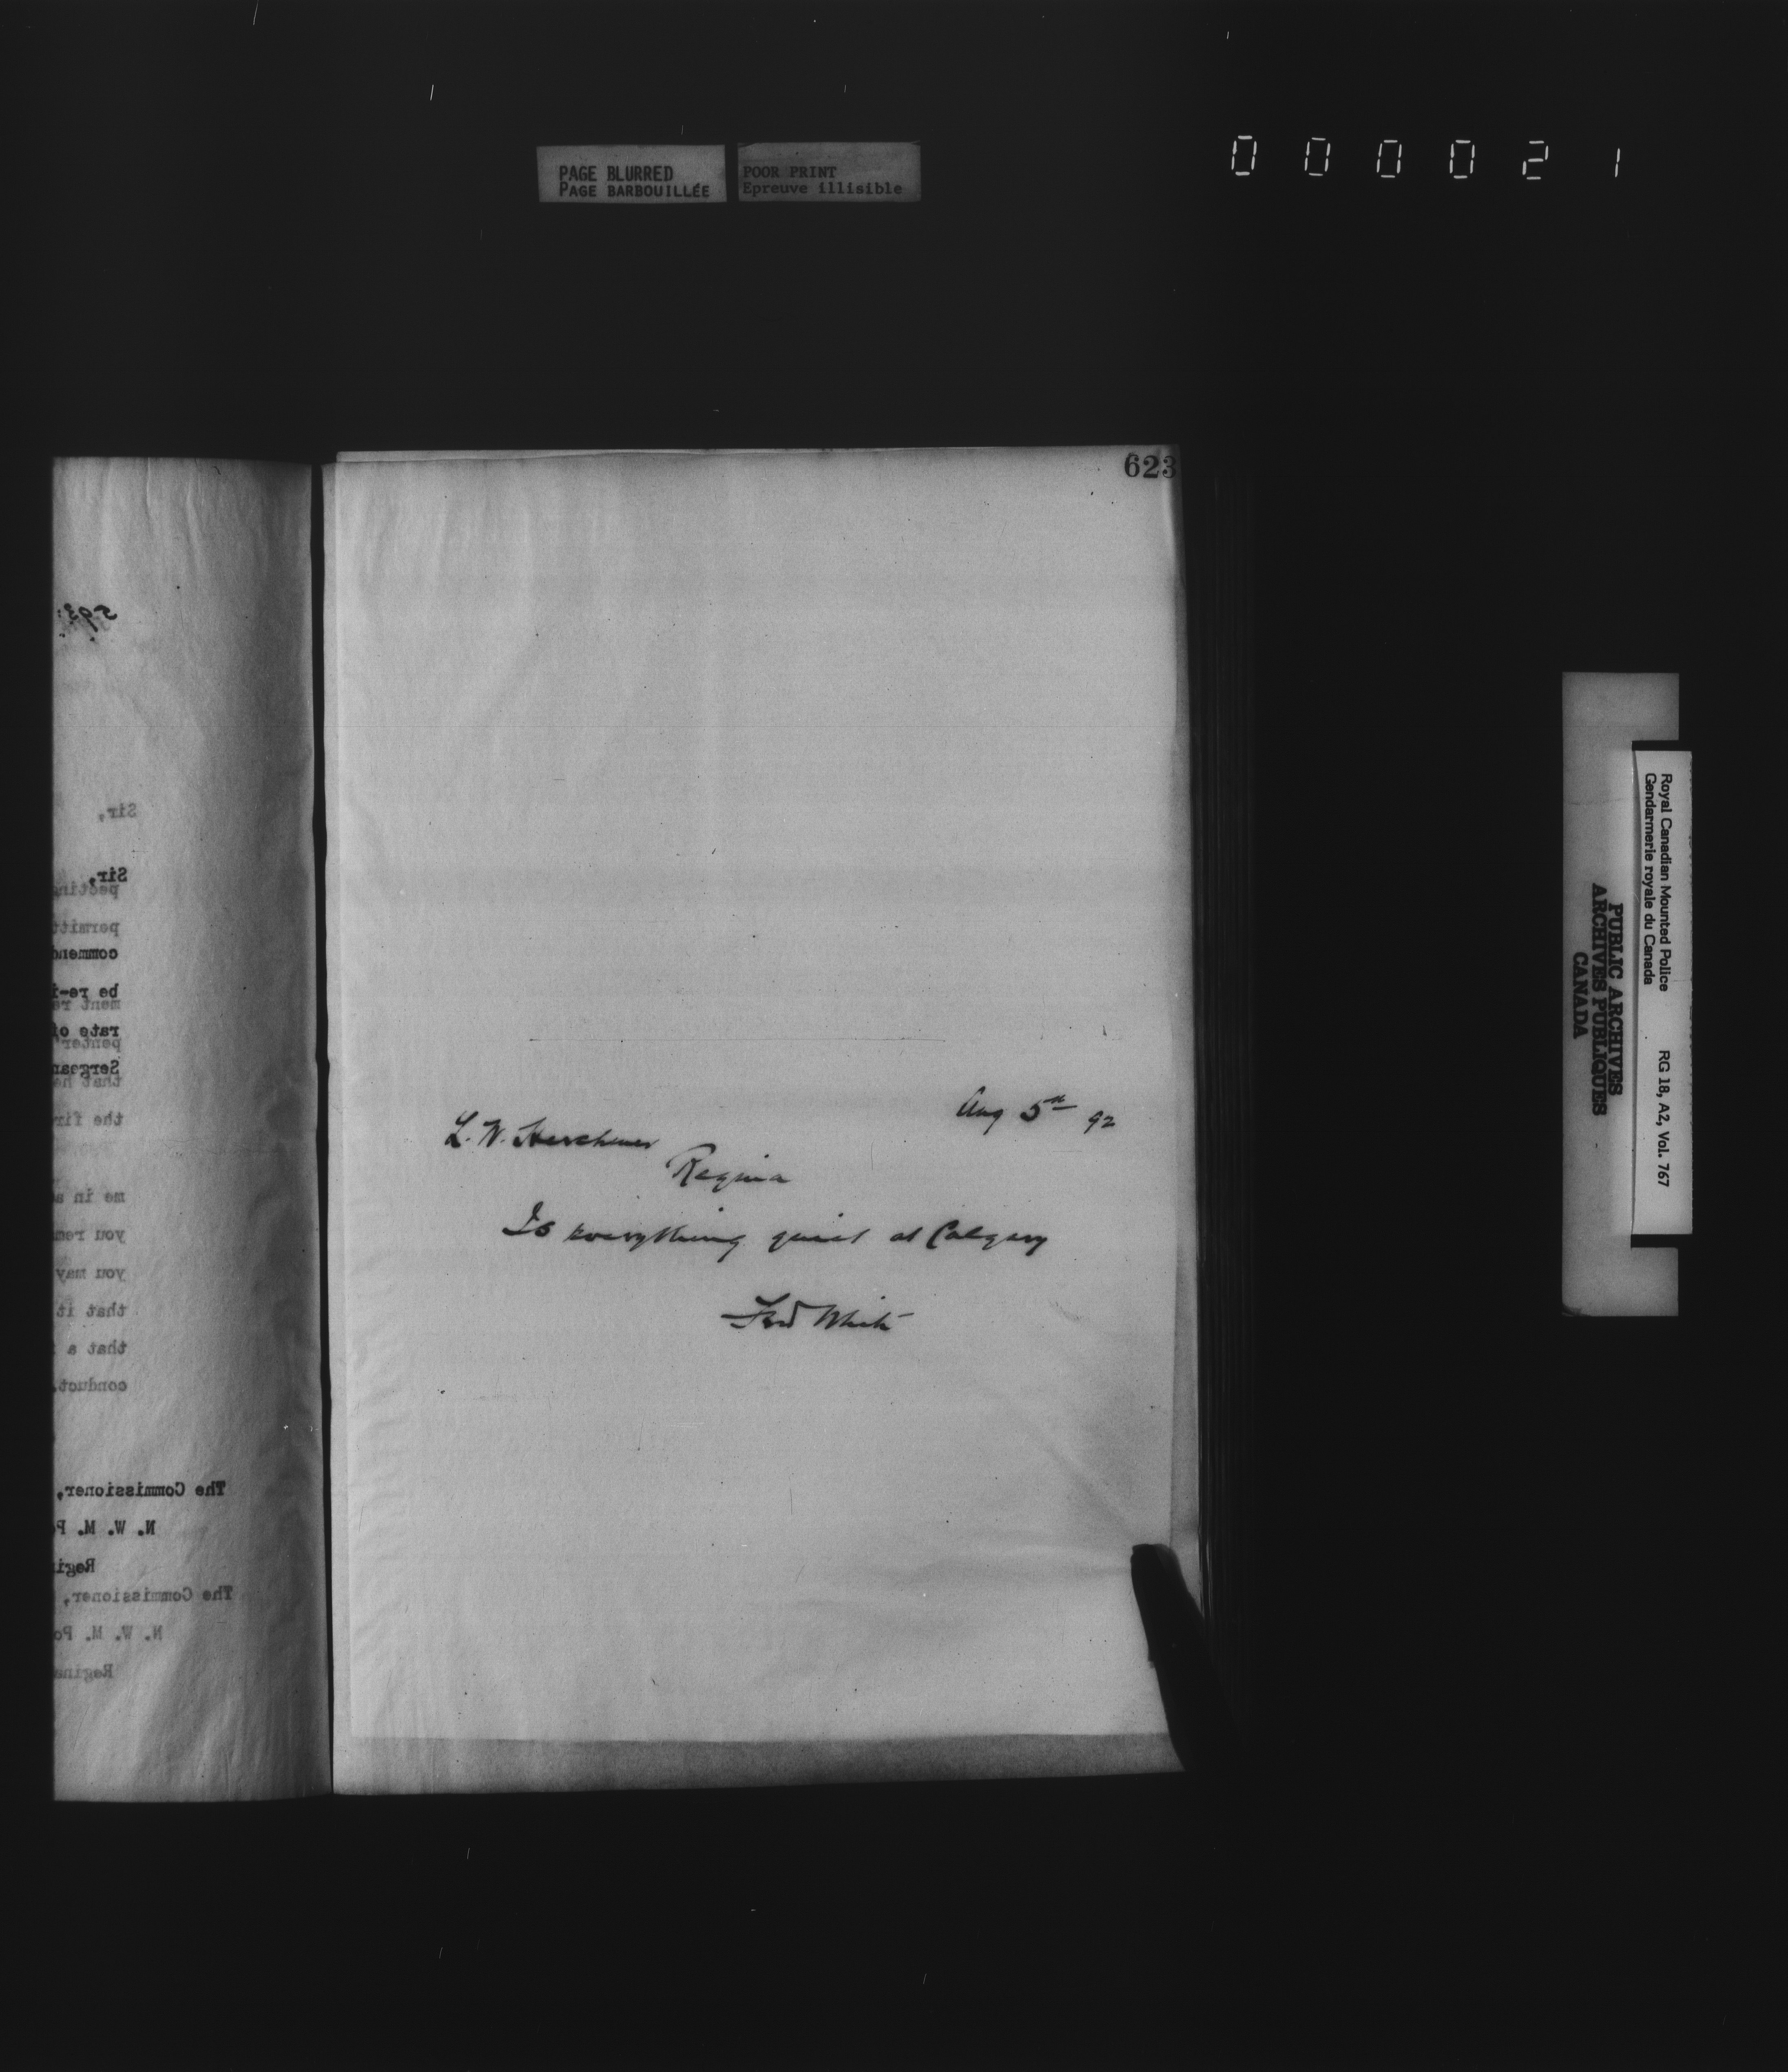 PAGE BLURRED
PAGE BARBOUILLÉE
POOR PRINT
Epreuve illisible
0 0 0 0 2 1
623
Aug 5th 92
L. W. Herchmer
Regina
Is everything quiet at Calgary
Fred White
Sir,
Sir,
pecting
permitt
commend
be re-i
ment re
rate of
penter
Sergean
that he
the fir
me in a
you rem
you may
that it
that a
conduct.
The Commissioner,
N. W. M. Po
Regi
The Commissioner,
N. W. M. Po
Regina
Royal Canadian Mounted Police
Gendarmerie royale du Canada
RG 18, A2, Vol. 767
PUBLIC ARCHIVES
ARCHIVES PUBLIQUES
CANADA